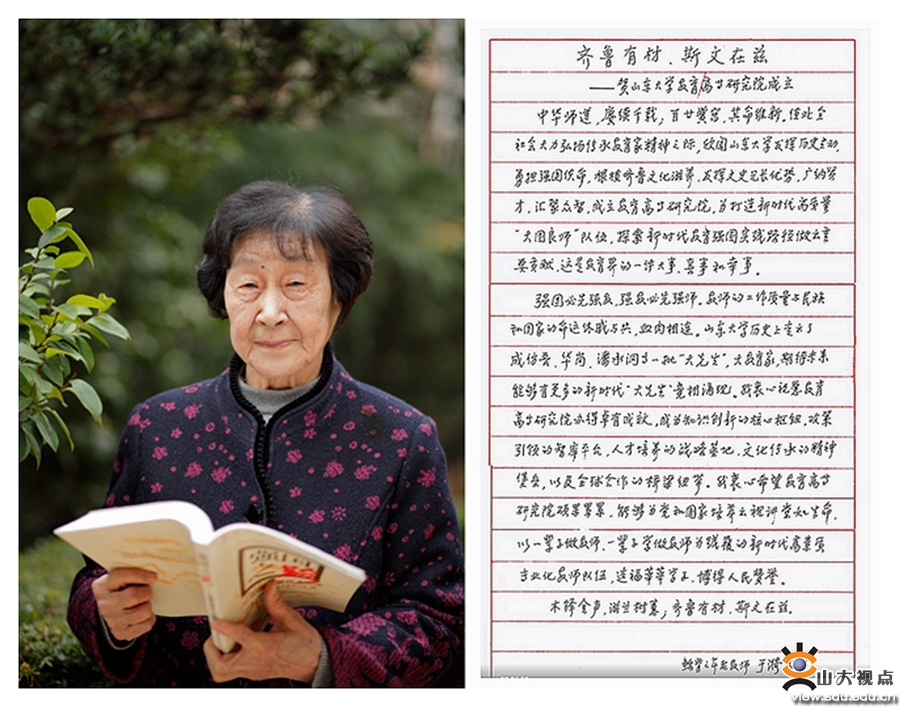 齐鲁有材、斯文在兹
——贺山东大学教育高等研究院成立
中华师道,赓续千载,百廿黉宫,其命维新。值此全
社会大力弘扬传承教育家精神之际,欣闻山东大学发挥历史主动,
勇担强国使命,根植齐鲁文化滋养,发挥文史见长优势,广纳贤
才,汇聚众智,成立教育高等研究院,为打造新时代高质量
“大国良师”队伍,探索新时代教育强国实践路径做出重
要贡献,这是教育界的一件大事、喜事和幸事。
强国必先强教,强教必先强师。教师的工作质量与民族
和国家命运休戚与共,血肉相连。山东大学历史上走出了
成仿吾、华岗、潘承洞等一批“大先生”,大教育家,期待未来
能够有更多的新时代“大先生”竞相涌现。我衷心祝愿教育
高等研究院办得卓有成效,成为知识创新的核心枢纽、政策
引领的智库平台、人才培养的战略基地、文化传承的精神
堡垒,以及全球合作的桥梁纽带。我衷心希望教育高等
研究院硕果累累,能够为党和国家培养出视讲堂如生命,
以一辈子做教师、一辈子学做教师为践履的新时代高素质
专业化教师队伍,造福莘莘学子,博得人民赞誉。
木铎金声,滋兰树蕙;齐鲁有材,斯文在兹。
教师 于漪
山大视点
view.sdu.edu.cn